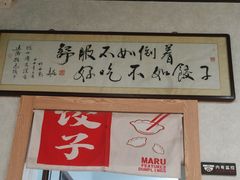 舒服不如倒着
好吃不如餃子
饺子
MARU
FEATURED
DUMPLINGS
内有监控